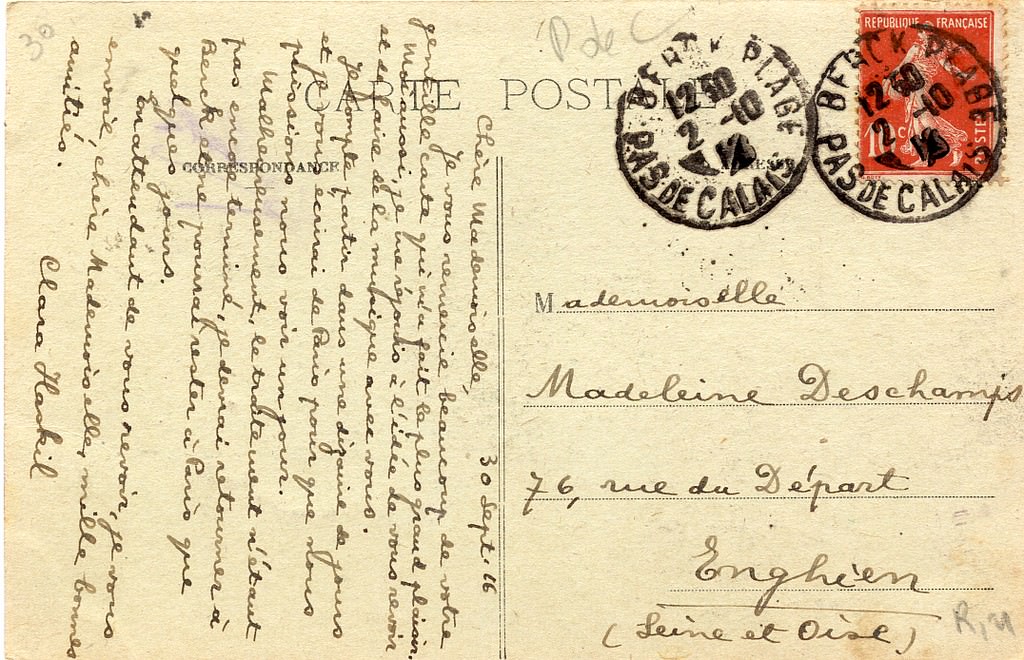 CARTE POSTALE
CORRESPONDANCE
P de C
30
RÉPUBLIQUE FRANÇAISE
10 c
POSTES
BERCK PLAGE
12 30
2 -10
16
PAS DE CALAIS
BERCK PLAGE
12 30
2 -10
16
PAS DE CALAIS
30 Sept. 16
Chère Mademoiselle,
Je vous remercie beaucoup de votre
gentille carte qui m'a fait le plus grand plaisir.
Moi aussi, je me réjouis à l'idée de vous revoir
et de faire de la musique avec vous.
Je compte partir dans une dizaine de jours
et je vous écrirai de Paris pour que nous
puissions nous voir un jour.
Malheureusement, le traitement n'étant
pas encore terminé, je devrai retourner à
Berck et ne pourrai rester à Paris que
quelques jours.
En attendant de vous revoir, je vous
envoie, chère Mademoiselle, mille bonnes
amitiés.
Clara Haskil
Mademoiselle
Madeleine Deschamps
76, rue du Départ
Enghien
(Seine et Oise)